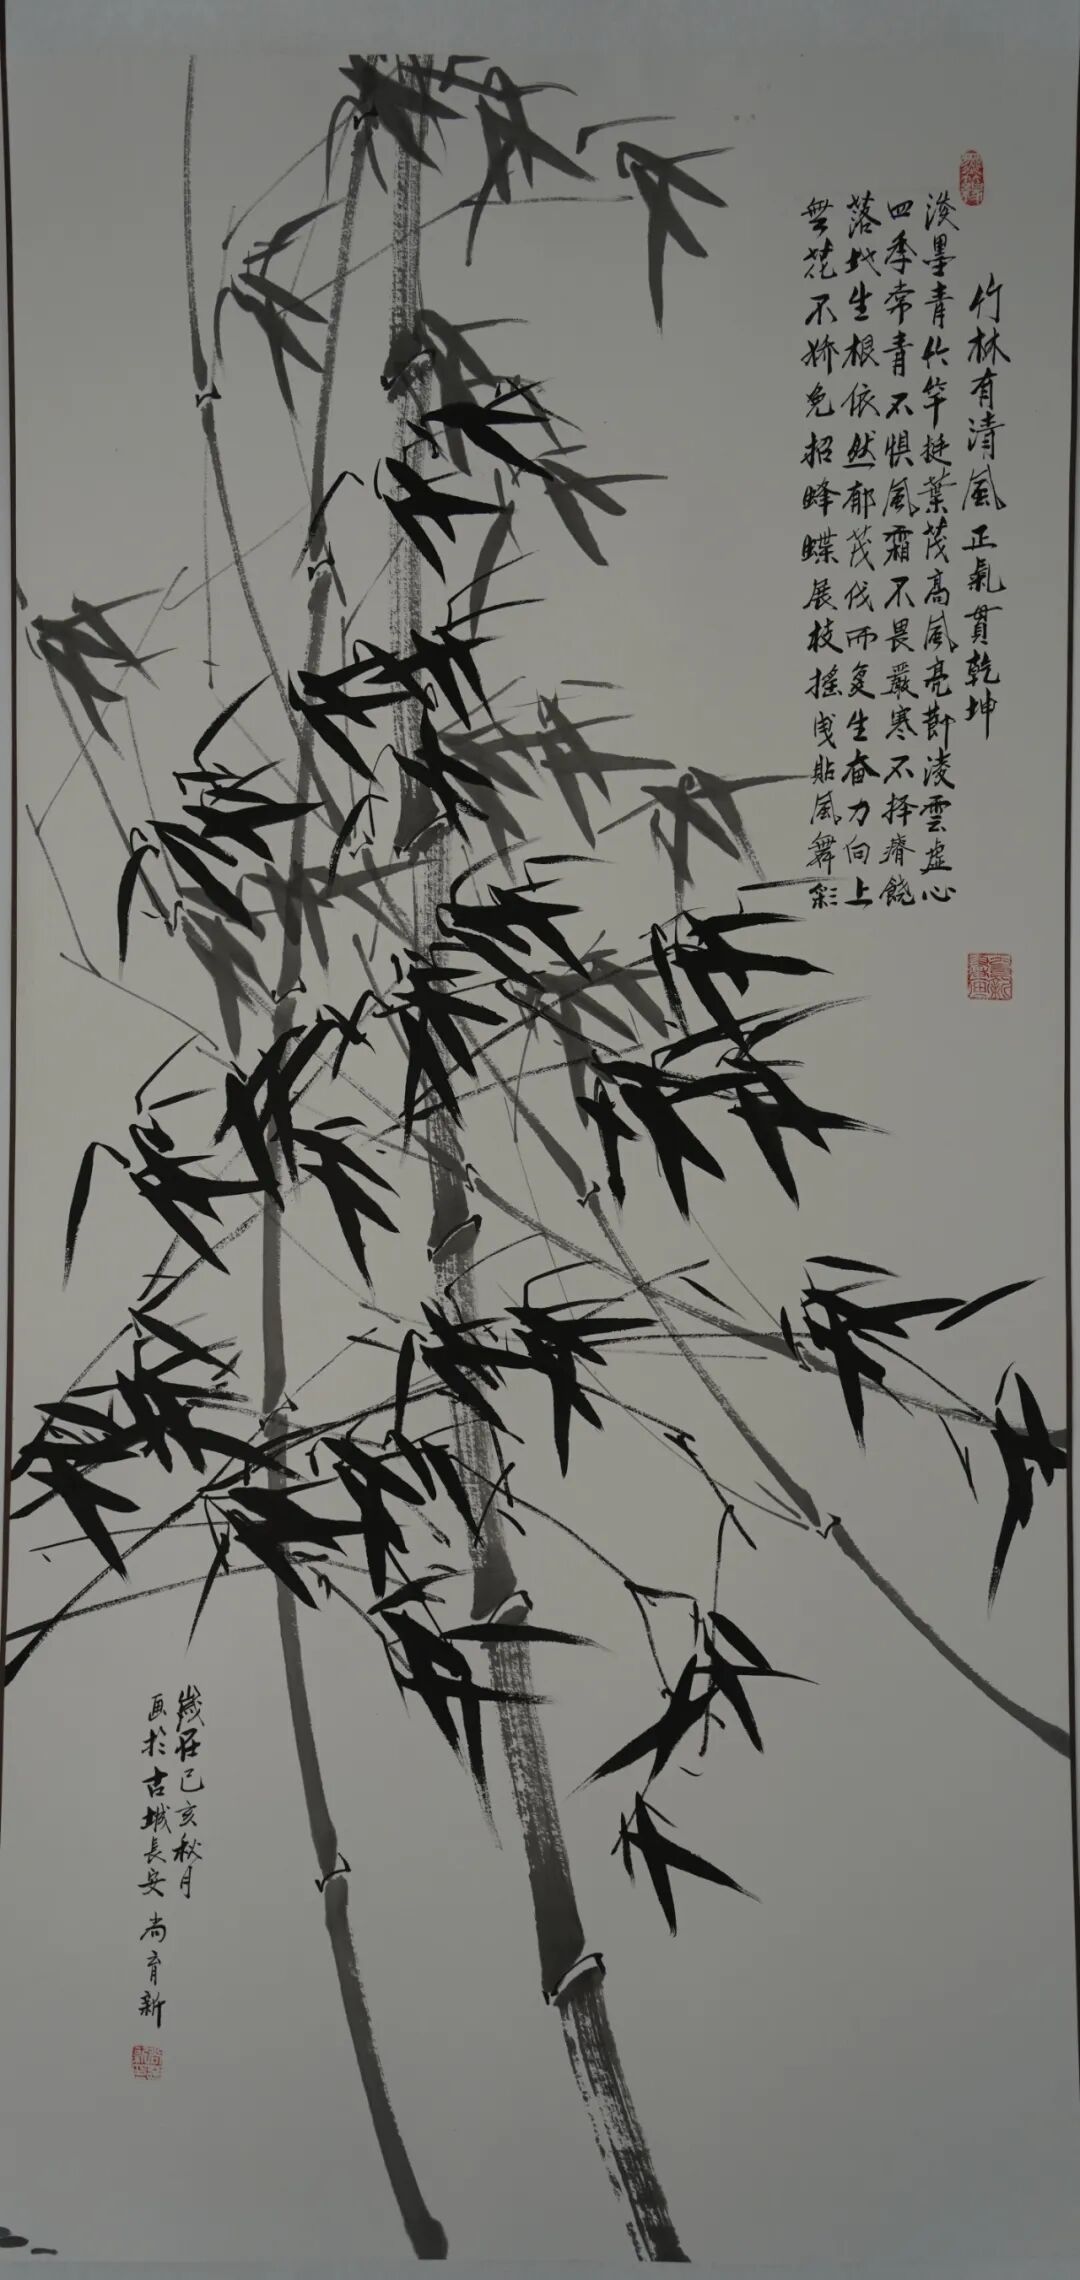 竹林有清風正氣貫乾坤
淡墨青竹竿挺葉茂高風亮節凌雲虛心
四季常青不惧風霜不畏嚴寒不择瘠饒
落地生根依然郁茂伐而复生奋力向上
無花不娇免招蜂蝶展枝搖曳貼風舞彩
歲在己亥秋月
画於古城長安 尚育新